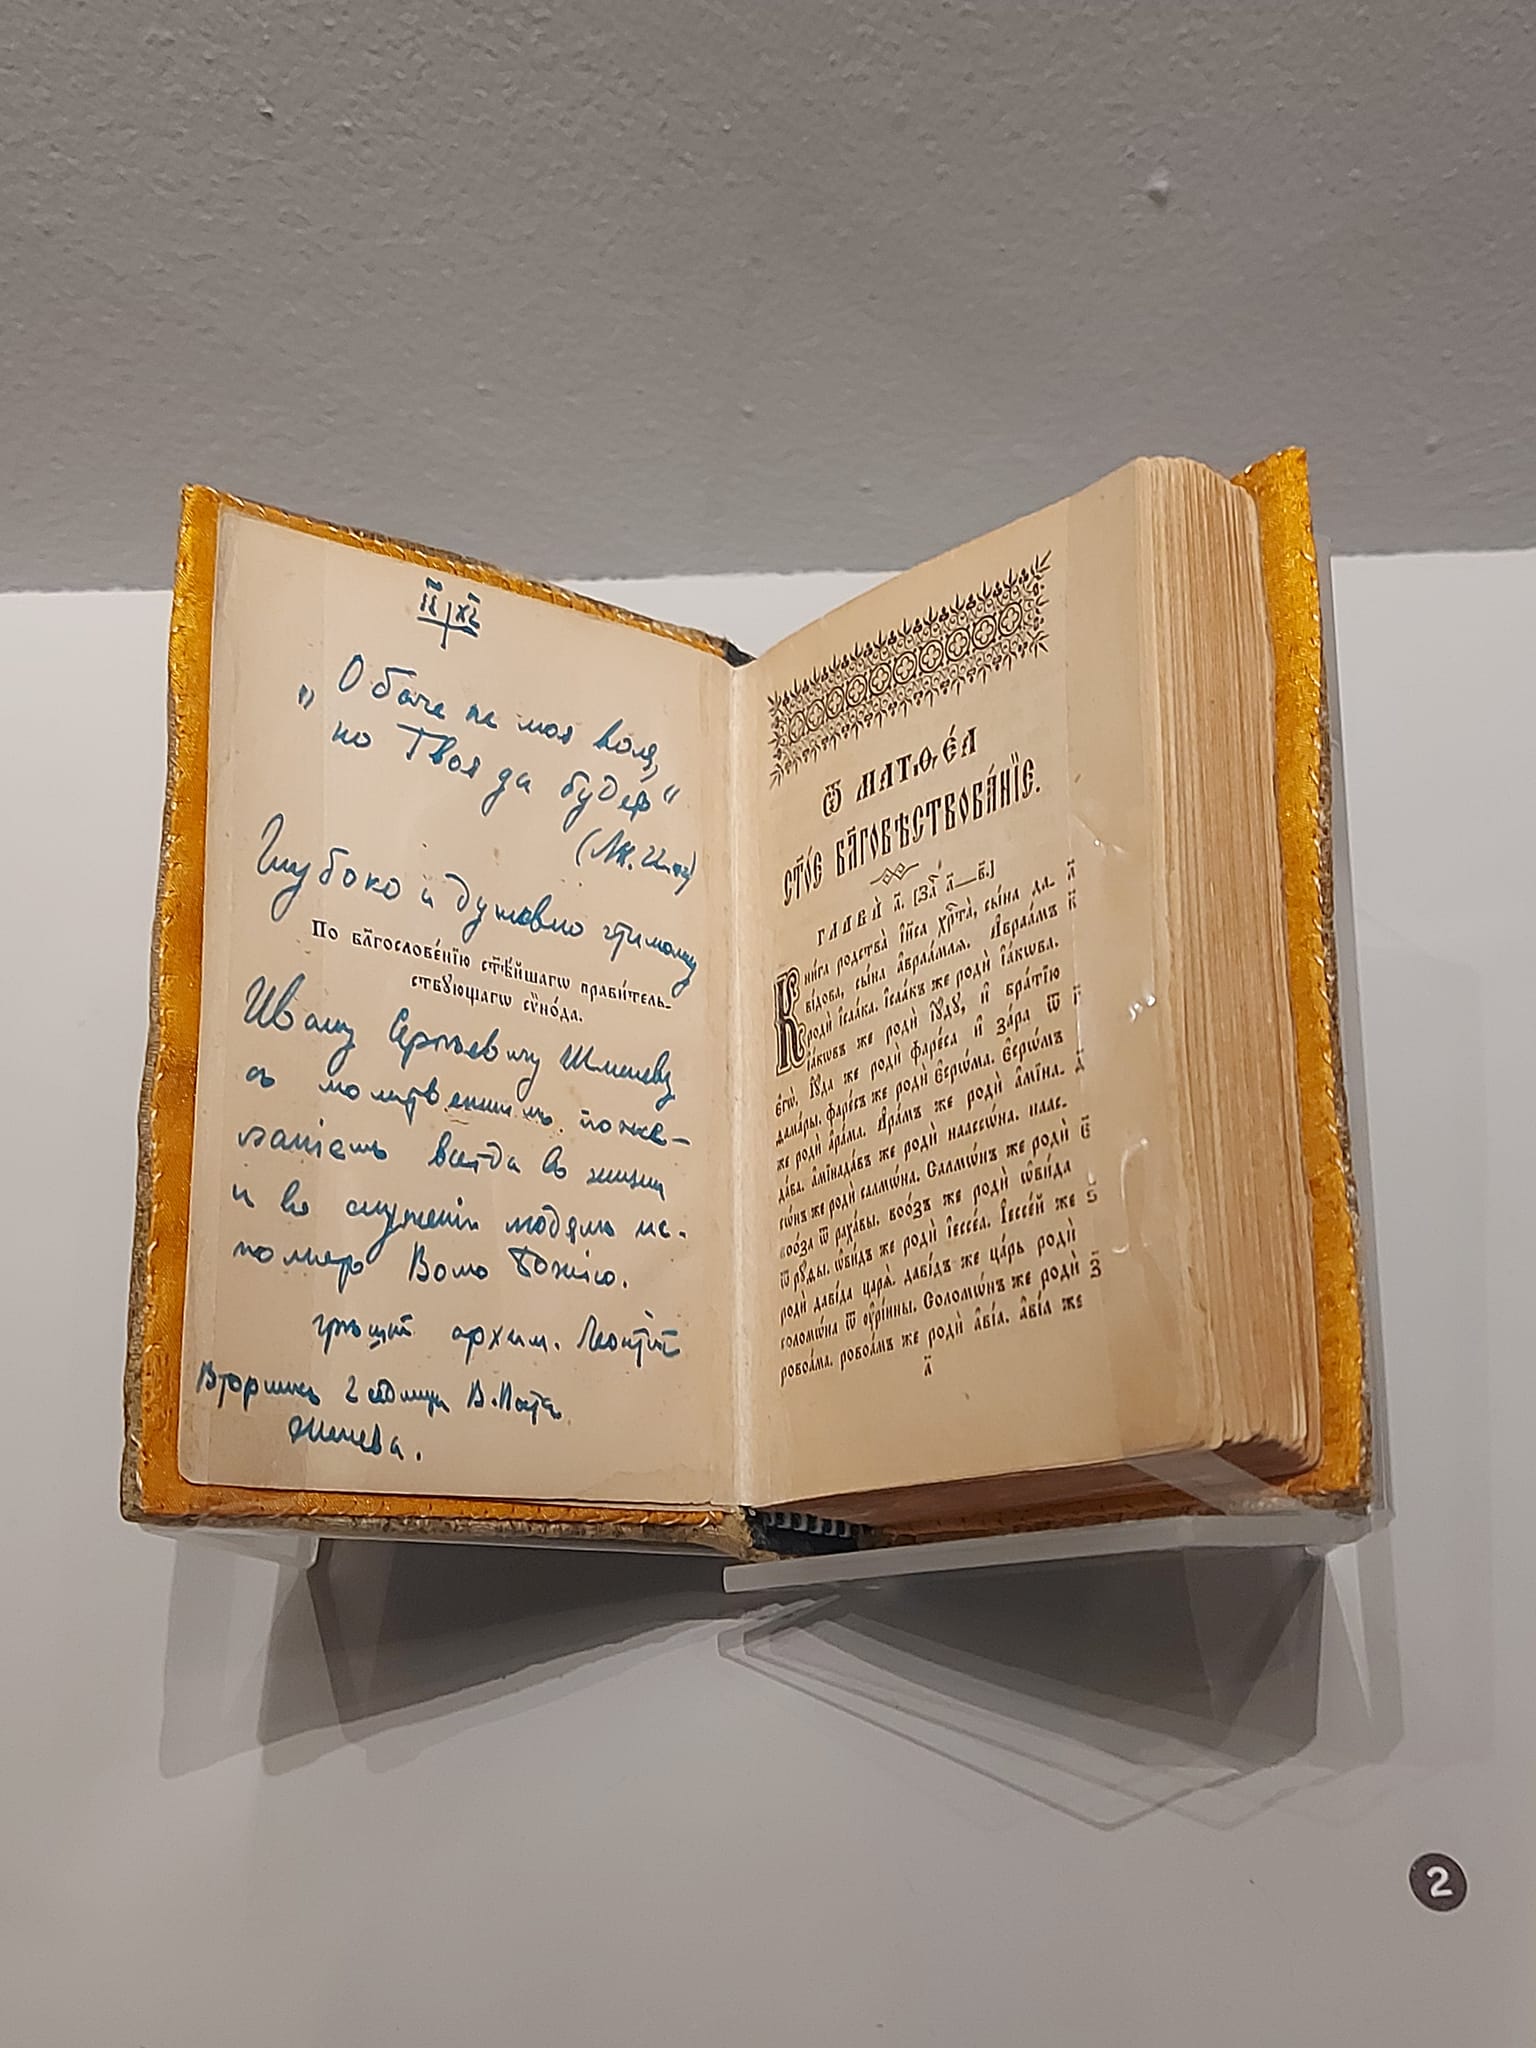 І҃с Х҃с
„Обаче не моя воля,
но Твоя да будет“
(Лк.
Глубоко и духовно чтимому
По бл҃гослове́нїю ст҃ѣ́йшагѡ прави́тель-
ствꙋющагѡ сѷно́да.
Ивану Сергѣевичу Шмелеву
съ молитвеннымъ поже-
ланіемъ всегда въ жизни
и въ служеніи людямъ ис-
полнять Волю Божію.
грѣшный архим. Леонтій
Вторникъ 2 седмицы В. Поста
Женева.
Ѿ матѳе́а
ст҃о́е бл҃говѣствова́нїе.
Глава̀ а҃. [За҃ а҃—в҃.]
Кни́га родства̀ і҆и҃са хрⷭ҇та̀, сы́на да- а҃
ві́дова, сы́на а҆враа́мля. А҆враа́мъ в҃
родѝ і҆саа́ка. І҆саа́къ же родѝ і҆а́кѡва.
І҆а́кѡвъ же родѝ і҆ꙋ́дꙋ, и҆ бра́тїю
є҆гѡ̀. І҆ꙋ́да же родѝ фаре́са и҆ за́ра ѿ г҃
дама́ры. фаре́съ же родѝ є҆срѡ́ма. Є҆срѡ́мъ
же родѝ а҆ра́ма. А҆ра́мъ же родѝ а҆мїна- д҃
да́ва. а҆мїнада́въ же родѝ наассѡ́на. наас-
сѡ́нъ же родѝ салмѡ́на. Салмѡ́нъ же родѝ є҃
воо́за ѿ раха́вы. воо́зъ же родѝ ѡ҆ви́да
ѿ рꙋ́ды. ѡ҆ви́дъ же родѝ і҆ессе́а. І҆ессе́й же ѕ҃
родѝ даві́да царѧ̀. даві́дъ же ца́рь родѝ
соломѡ́на ѿ ᲂу҆рі́ины. Соломѡ́нъ же родѝ з҃
ровоа́ма. ровоа́мъ же родѝ а҆ві́а. а҆ві́а же
а҃
2